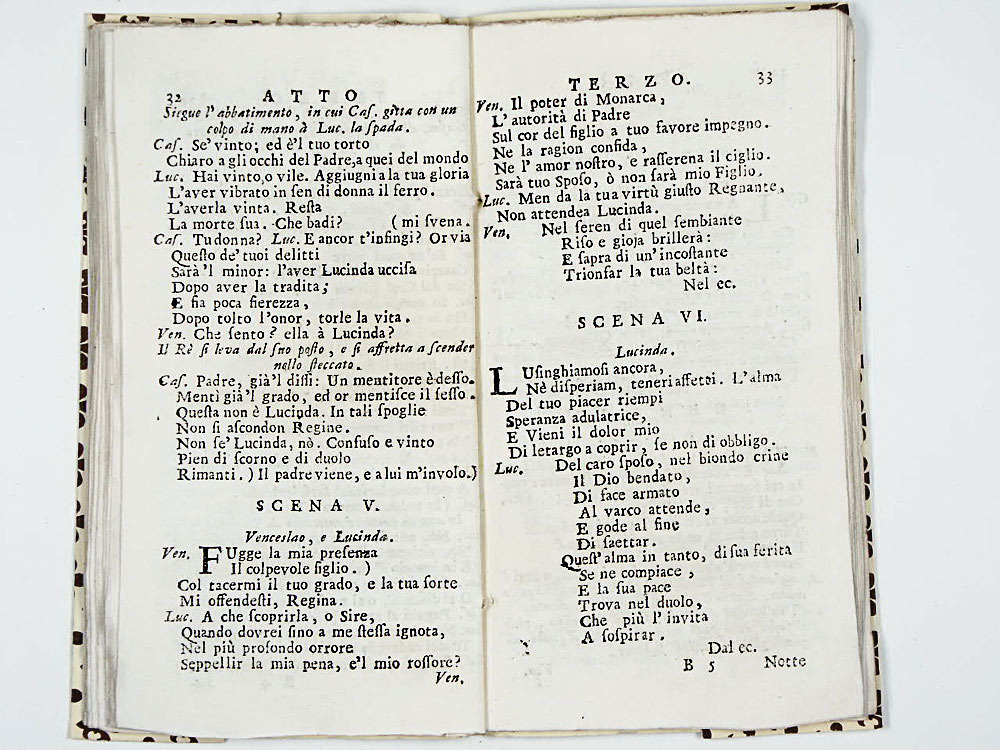 32 ATTO
Siegue l'abbatimento, in cui Cas. gitta con un
colpo di mano à Luc. la spada.
Cas. Se' vinto; ed è'l tuo torto
Chiaro a gli occhi del Padre, a quei del mondo
Luc. Hai vinto, o vile. Aggiugni a la tua gloria
L'aver vibrato in sen di donna il ferro.
L'averla vinta. Resta
La morte sua. Che badi? (mi svena.
Cas. Tu donna? Luc. E ancor t'infingi? Or via
Questo de' tuoi delitti
Sarà 'l minor: l'aver Lucinda uccisa
Dopo aver la tradita;
E fia poca fierezza,
Dopo tolto l'onor, torle la vita.
Ven. Che sento? ella à Lucinda?
Il Rè si leva dal suo posto, e si affretta a scender
nello steccato.
Cas. Padre, già'l dissi: Un mentitore è desso.
Mentì già'l grado, ed or mentisce il sesso.
Questa non è Lucinda. In tali spoglie
Non si ascondon Regine.
Non se' Lucinda, nò. Confuso e vinto
Pien di scorno e di duolo
Rimanti.) Il padre viene, e a lui m'involo.)
SCENA V.
Venceslao, e Lucinda.
Ven. FUgge la mia presenza
Il colpevole figlio. )
Col tacermi il tuo grado, e la tua sorte
Mi offendesti, Regina.
Luc. A che scoprirla, o Sire,
Quando dovrei sino a me stessa ignota,
Nel più profondo orrore
Seppellir la mia pena, e'l mio rossore?
Ven.
TERZO. 33
Ven. Il poter di Monarca,
L'autorità di Padre
Sul cor del figlio a tuo favore impegno.
Ne la ragion confida,
Ne l'amor nostro, e rasserena il ciglio.
Sarà tuo Sposo, ò non sarà mio Figlio.
Luc. Men da la tua virtù giusto Regnante,
Non attendea Lucinda.
Ven. Nel seren di quel sembiante
Riso e gioja brillerà:
E sapra di un' incostante
Trionfar la tua beltà:
Nel ec.
SCENA VI.
Lucinda.
LUsinghiamosi ancora,
Nè disperiam, teneri affetti. L'alma
Del tuo piacer riempi
Speranza adulatrice,
E Vieni il dolor mio
Di letargo a coprir, se non di obbligo.
Luc. Del caro sposo, nel biondo crine
Il Dio bendato,
Di face armato
Al varco attende,
E gode al fine
Di saettar.
Quest' alma in tanto, di sua ferita
Se ne compiace,
E la sua pace
Trova nel duolo,
Che più l'invita
A sospirar.
Dal ec.
B 5 Notte